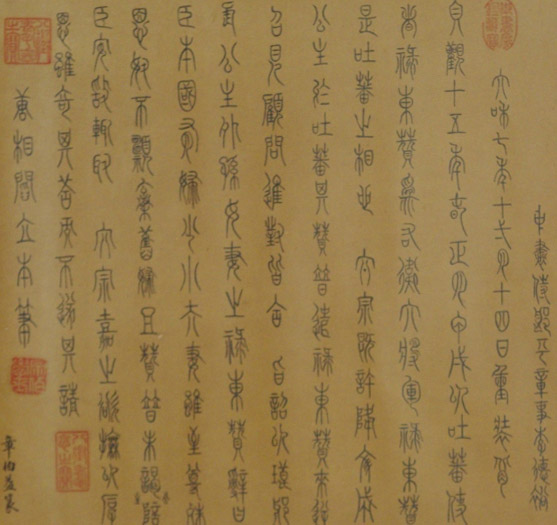 中書侍郎平章事李德裕
太和七年十一月十四日重裝背
貞觀十五年春正月甲戌以吐蕃使
者祿東贊爲右衛大將軍祿東贊
是吐蕃之相也 太宗既許降文成
公主於吐蕃其贊普遣祿東贊來逆
召見顧問進對皆合 旨詔以瑯琊
公主外孫女妻之祿東贊辭曰
臣本國有婦少小夫妻雖至尊殊
恩奴不願棄舊婦且贊普未謁陪
臣安敢輒取 太宗嘉之欲撫以厚
恩雖奇其答而不遂其請
唐相閻立本筆
章伯益篆